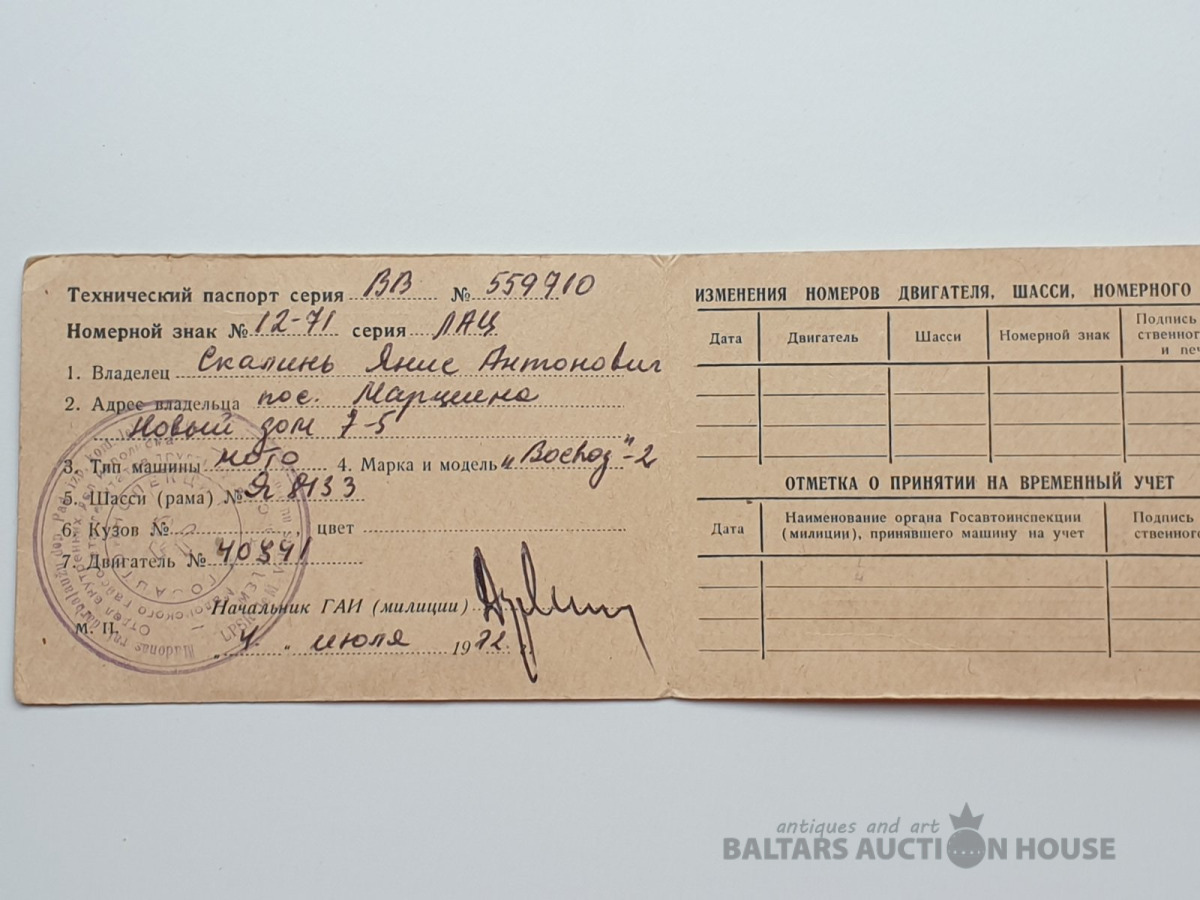 Технический паспорт серия ВВ № 559710
Номерной знак № 12-71 серия ЛАЦ
1. Владелец Скалинь Янис Антонович
2. Адрес владельца пос. Марциена
Новый дом 7-5
3. Тип машины мото 4. Марка и модель „Восход"-2
5. Шасси (рама) № Я 8133
6. Кузов № , цвет
7. Двигатель №
Начальник ГАИ (милиции)
М. П. „4" июля 1972 г.
ИЗМЕНЕНИЯ НОМЕРОВ ДВИГАТЕЛЯ, ШАССИ, НОМЕРНОГО
Дата Двигатель Шасси Номерной знак Подпись
ственног
и печ
ОТМЕТКА О ПРИНЯТИИ НА ВРЕМЕННЫЙ УЧЕТ
Дата Наименование органа Госавтоинспекции
(милиции), принявшего машину на учет Подпись
ственного
antiques and art
BALTARS AUCTION HOUSE